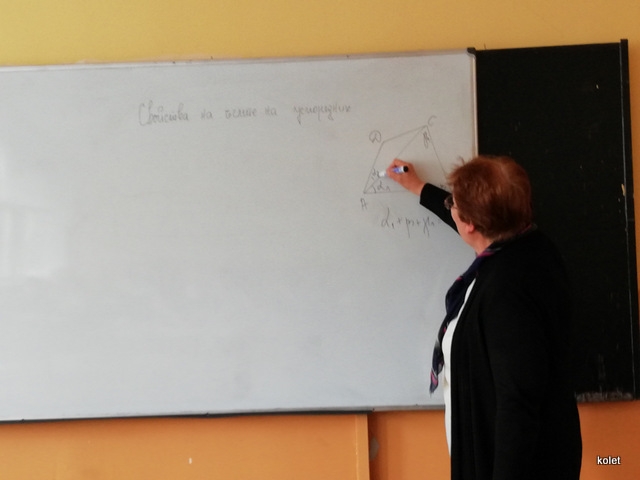 Свойства на ъглите на четириъгълник
D C
A
α₁ + β + γ₁
kolet